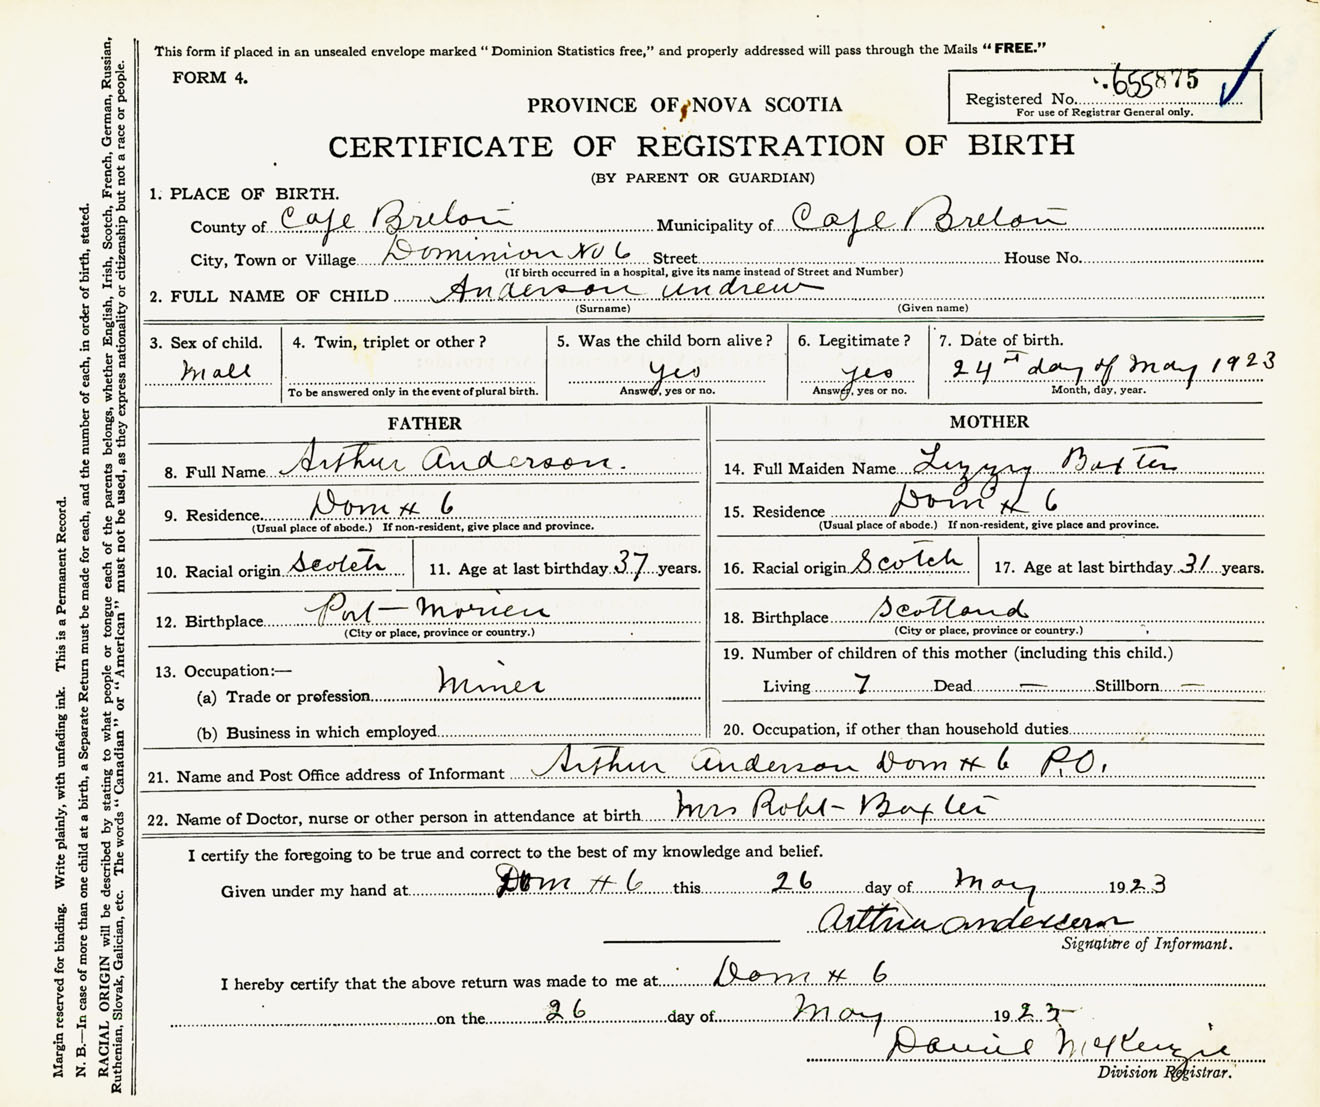 This form if placed in an unsealed envelope marked "Dominion Statistics free," and properly addressed will pass through the Mails "FREE."
FORM 4.
655875
Registered No.
For use of Registrar General only.
PROVINCE OF NOVA SCOTIA
CERTIFICATE OF REGISTRATION OF BIRTH
(BY PARENT OR GUARDIAN)
1. PLACE OF BIRTH.
County of Cape Breton Municipality of Cape Breton
City, Town or Village Dominion No 6 Street House No.
(If birth occurred in a hospital, give its name instead of Street and Number)
2. FULL NAME OF CHILD Anderson Andrew
(Surname) (Given name)
3. Sex of child. 4. Twin, triplet or other? 5. Was the child born alive? 6. Legitimate? 7. Date of birth.
Male yes yes 24th day of May 1923
To be answered only in the event of plural birth. Answer, yes or no. Answer, yes or no. Month, day, year.
FATHER
8. Full Name Arthur Anderson.
9. Residence. Dom # 6
(Usual place of abode.) If non-resident, give place and province.
10. Racial origin Scotch 11. Age at last birthday 37 years.
12. Birthplace Port-Morien
(City or place, province or country.)
13. Occupation:—
(a) Trade or profession Miner
(b) Business in which employed
MOTHER
14. Full Maiden Name Lizzy Baxter
15. Residence Dom # 6
(Usual place of abode.) If non-resident, give place and province.
16. Racial origin Scotch 17. Age at last birthday 31 years.
18. Birthplace Scotland
(City or place, province or country.)
19. Number of children of this mother (including this child.)
Living 7 Dead — Stillborn —
20. Occupation, if other than household duties
21. Name and Post Office address of Informant Arthur Anderson Dom # 6 P.O.
22. Name of Doctor, nurse or other person in attendance at birth Mrs Robt-Baxter
I certify the foregoing to be true and correct to the best of my knowledge and belief.
Given under my hand at Dom # 6 this 26 day of May 1923
Arthur Anderson
Signature of Informant.
I hereby certify that the above return was made to me at Dom # 6
on the 26 day of May 1923
Daniel McKenzie
Division Registrar.
Margin reserved for binding. Write plainly, with unfading ink. This is a Permanent Record.
N. B.—In case of more than one child at a birth, a Separate Return must be made for each, and the number of each, in order of birth, stated.
RACIAL ORIGIN will be described by stating to what people or tongue each of the parents belongs, whether English, Irish, Scotch, French, German, Russian,
Ruthenian, Slovak, Galician, etc. The words "Canadian" or "American" must not be used, as they express nationality or citizenship but not a race or people.